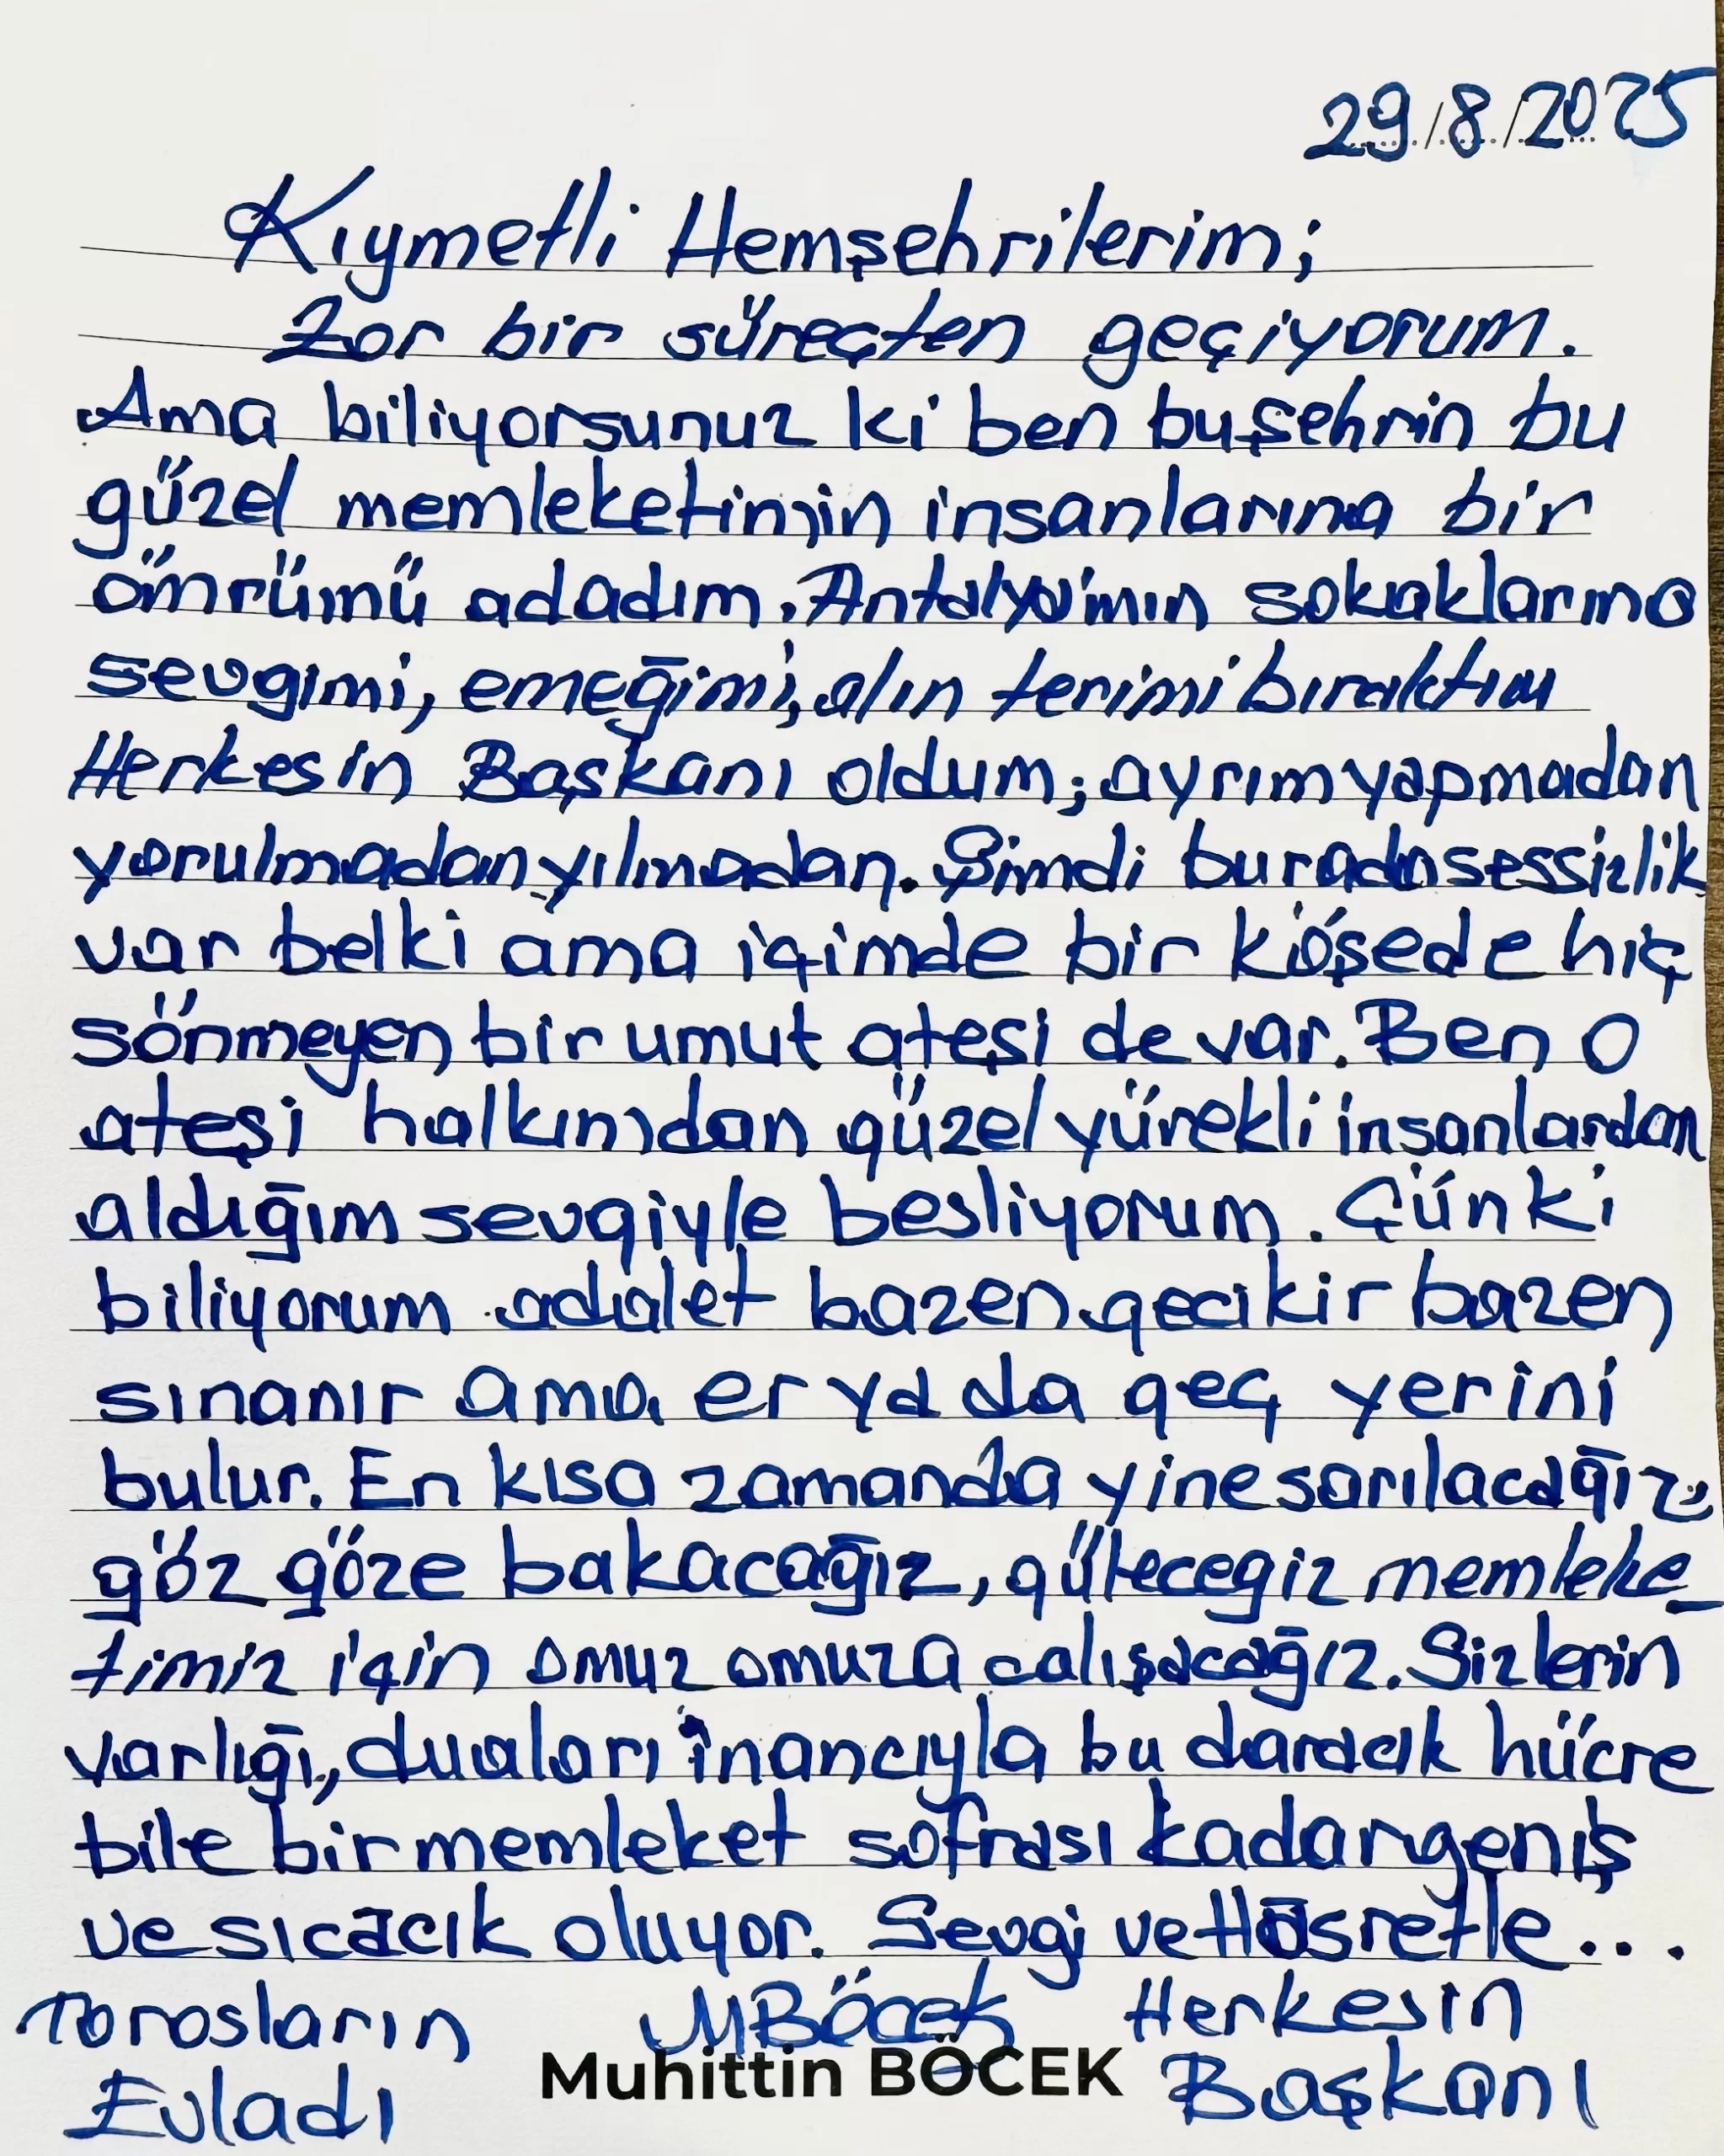 29/8/2025
Kıymetli Hemşehrilerim;
Zor bir süreçten geçiyorum.
Ama biliyorsunuz ki ben bu şehrin bu
güzel memleketimin insanlarına bir
ömrümü adadım. Antalya'mın sokaklarına
sevgimi, emeğimi, alın terimi bıraktım
Herkesin Başkanı oldum; ayrım yapmadan
yorulmadan yılmadan. Şimdi burada sessizlik
var belki ama içimde bir köşede hiç
sönmeyen bir umut ateşi de var. Ben o
ateşi halkımdan güzel yürekli insanlardan
aldığım sevgiyle besliyorum. Çünki
biliyorum adalet bazen gecikir bazen
sınanır ama er ya da geç yerini
bulur. En kısa zamanda yine sarılacağız,
göz göze bakacağız, güleceğiz memleke-
timiz için omuz omuza çalışacağız. Sizlerin
varlığı, duaları inancıyla bu daracık hücre
bile bir memleket sofrası kadar geniş
ve sıcacık oluyor. Sevgi ve Hasretle...
Torosların MBöcek Herkesin
Evladı Muhittin BÖCEK Başkanı